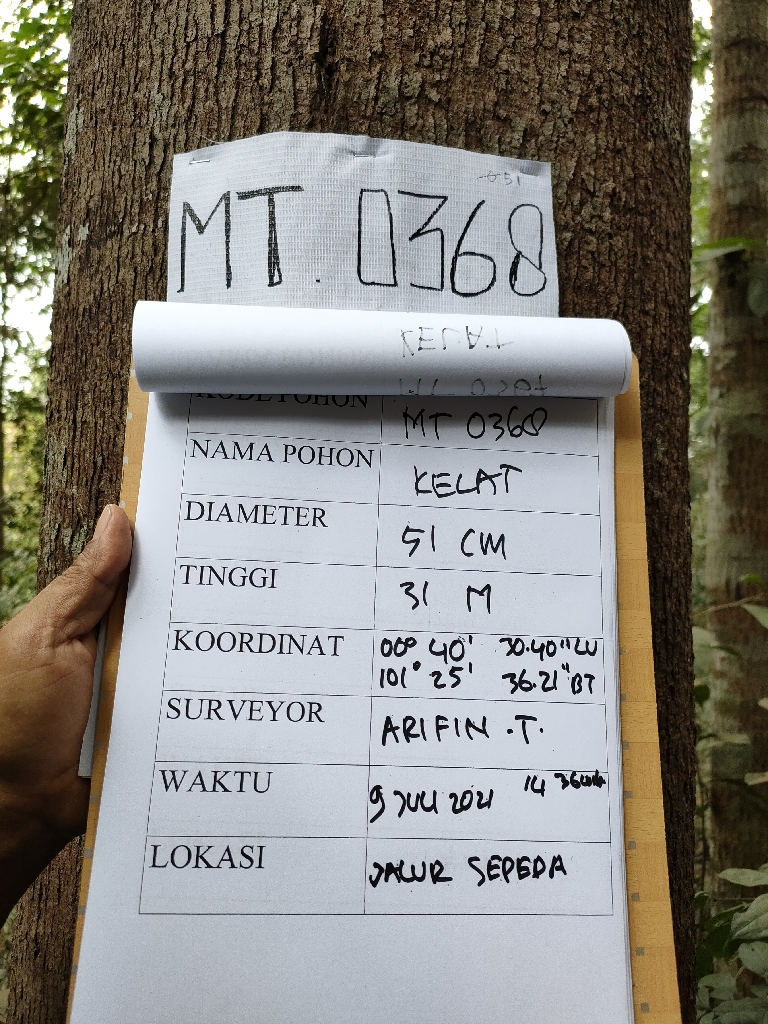 51
MT. 0368
KELAT
KODE POHON MT 0368
NAMA POHON KELAT
DIAMETER 51 CM
TINGGI 31 M
KOORDINAT 00° 40' 30.40" LU
101° 25' 36.21" BT
SURVEYOR ARIFIN .T.
WAKTU 9 JULI 2021 14 36 WIB
LOKASI JALUR SEPEDA